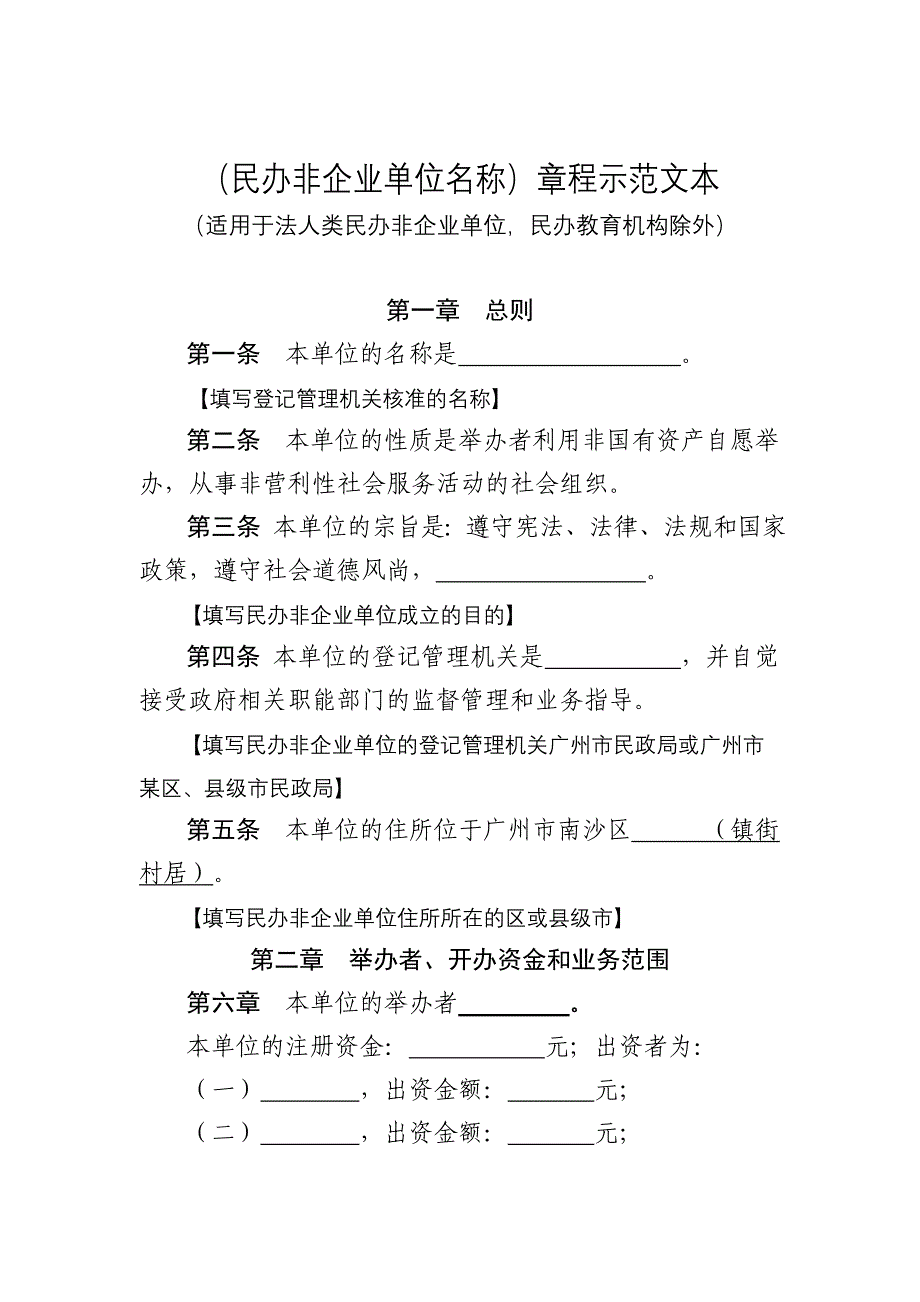 （民办非企业单位名称）章程示范文本
（适用于法人类民办非企业单位，民办教育机构除外）
第一章　总则
第一条　本单位的名称是__________________。
【填写登记管理机关核准的名称】
第二条　本单位的性质是举办者利用非国有资产自愿举
办，从事非营利性社会服务活动的社会组织。
第三条 本单位的宗旨是：遵守宪法、法律、法规和国家
政策，遵守社会道德风尚，_________________。
【填写民办非企业单位成立的目的】
第四条 本单位的登记管理机关是___________，并自觉
接受政府相关职能部门的监督管理和业务指导。
【填写民办非企业单位的登记管理机关广州市民政局或广州市
某区、县级市民政局】
第五条　本单位的住所位于广州市南沙区______（镇街
村居）。
【填写民办非企业单位住所所在的区或县级市】
第二章　举办者、开办资金和业务范围
第六章　本单位的举办者_________。
本单位的注册资金：___________元；出资者为：
（一）________，出资金额：_______元；
（二）________，出资金额：_______元；